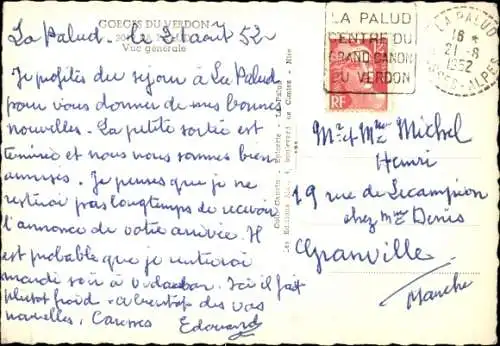 GORGES DU VERDON
Vue générale
La Palud. le 21 Août 52
Je profite du séjour à La Palud
pour vous donner de mes bonnes
nouvelles. La petite sortie est
terminée et nous nous sommes bien
amusés. Je penses que je ne
resterai pas longtemps de recevoir
l'annonce de votre arrivée. Il
est probable que je
mardi soir à Ici il fait
plutôt froid. a bientôt des vos
nouvelles, Caresses Edouard
LA PALUD
CENTRE DU
GRAND CANON
DU VERDON
RF
LA PALUD
16 *
21-8
1952
BSSES-ALPES
Mr et Mme Michel
Henri
19 rue de Lecampion
chez Mme Denis
Granville
Manche